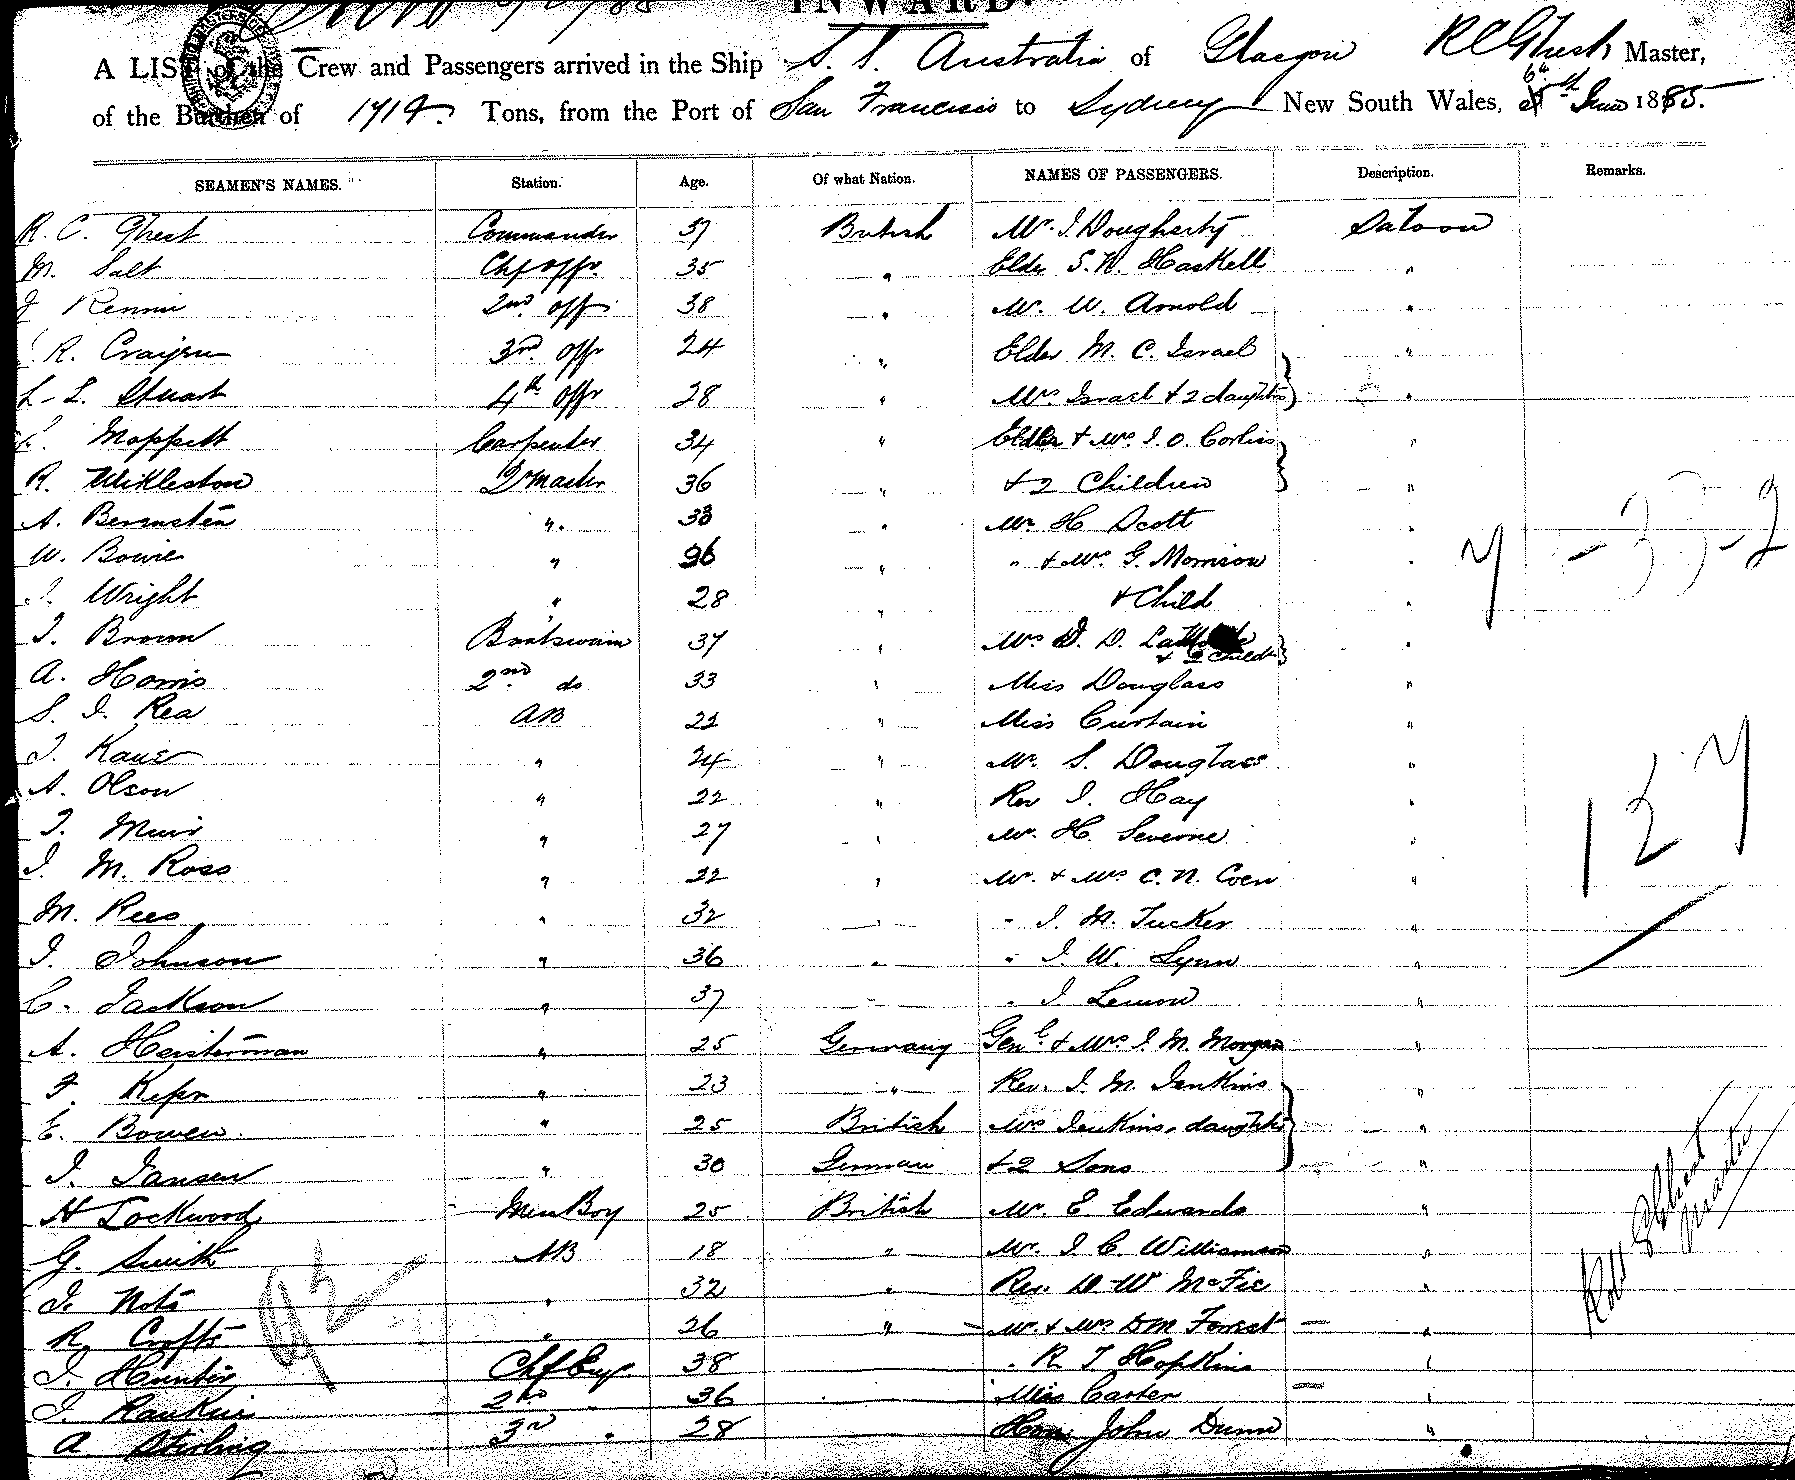 INWARD.
A LIST of the Crew and Passengers arrived in the Ship S. S. Australia of Glasgow R C Ghest Master,
of the Burthen of 1914 Tons, from the Port of San Francisco to Sydney New South Wales, June 1885.
SEAMEN'S NAMES. Station. Age. Of what Nation. NAMES OF PASSENGERS. Description. Remarks.
R. C. Ghest Commander 37 British Mr. J. Dougherty Saloon
M. Salt Chf offr 35 " Elder S. N. Haskell "
J Rennie 2nd offr 38 " Mr. W. Arnold "
R. 3rd offr 24 " Elder M. C. Israel "
L. L. Stuart 4th offr 28 " Mrs Israel + 2 daughters "
Moppett Carpenter 34 " Elder + Mrs J. O. Corliss "
R. Mikleston Qr master 36 " + 2 Children "
A. Bernsten " 38 " Mr H Scott "
W. Bowie " 36 " " + Mrs. G. Morrison "
J. Wright " 28 " + Child "
J. Brown Boatswain 37 " Mrs D. D. + 2 child "
A. Harris 2nd do 33 " Miss Douglass "
S. J. Rea AB 22 " Miss Curtain "
J. Kane " 24 " Mr. S. Douglass "
A. Olson " 22 " Rev J. Hay "
J. Muir " 27 " Mr. H. Severne "
J. M. Ross " 22 " Mr. + Mrs C. N. Coen "
M. Rees " 32 " " J. M. Tucker "
J. Johnson " 36 " " J. W. Lynn "
C. Jackson " 37 " " J Lemon "
A. Heisterman " 25 Germany Genl. + Mrs J. M. Morgan "
F. " 23 " Rev. J. M. Jenkins "
E. Bowen " 25 British Mrs Jenkins, daughter "
J. Jansen " 30 German + 2 Sons "
H Lockwood Mess Boy 25 British Mr. E. Edwards "
G. Smith AB 18 " Mr. J. C. Williamson "
J. " 32 " Rev. D. W McFie "
R. Crofts " 26 " Mr. + Mrs D M Forrest "
J. Hunter Chf Eng 38 " R. T Hopkins "
J. Rankin 2nd " 36 Miss Carter "
A. Stirling 3rd " 28 Hon John Dunn "
92
137
Ghest
Master